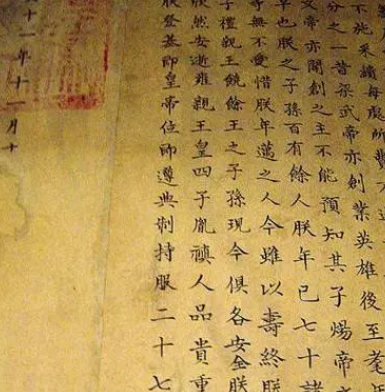 不施采繢每處所費不
分之一昔梁武帝亦創業英雄後至耄
文帝亦開創之主不能預知其子煬帝
早也朕之子孫百有餘人朕年已七十諸
無不愛惜朕年邁之人今雖以壽終朕
子禮親王饒餘王之子孫現今俱各安全朕
欣然安逝雍親王皇四子胤禛人品貴重
朕登基即皇帝位即遵典制持服二十七
十一年十一月十